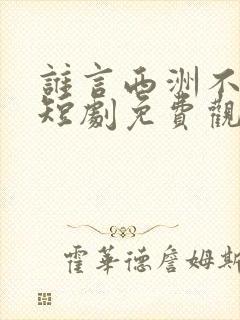 誰言西洲不
短劇免費觀
霍華德詹姆斯